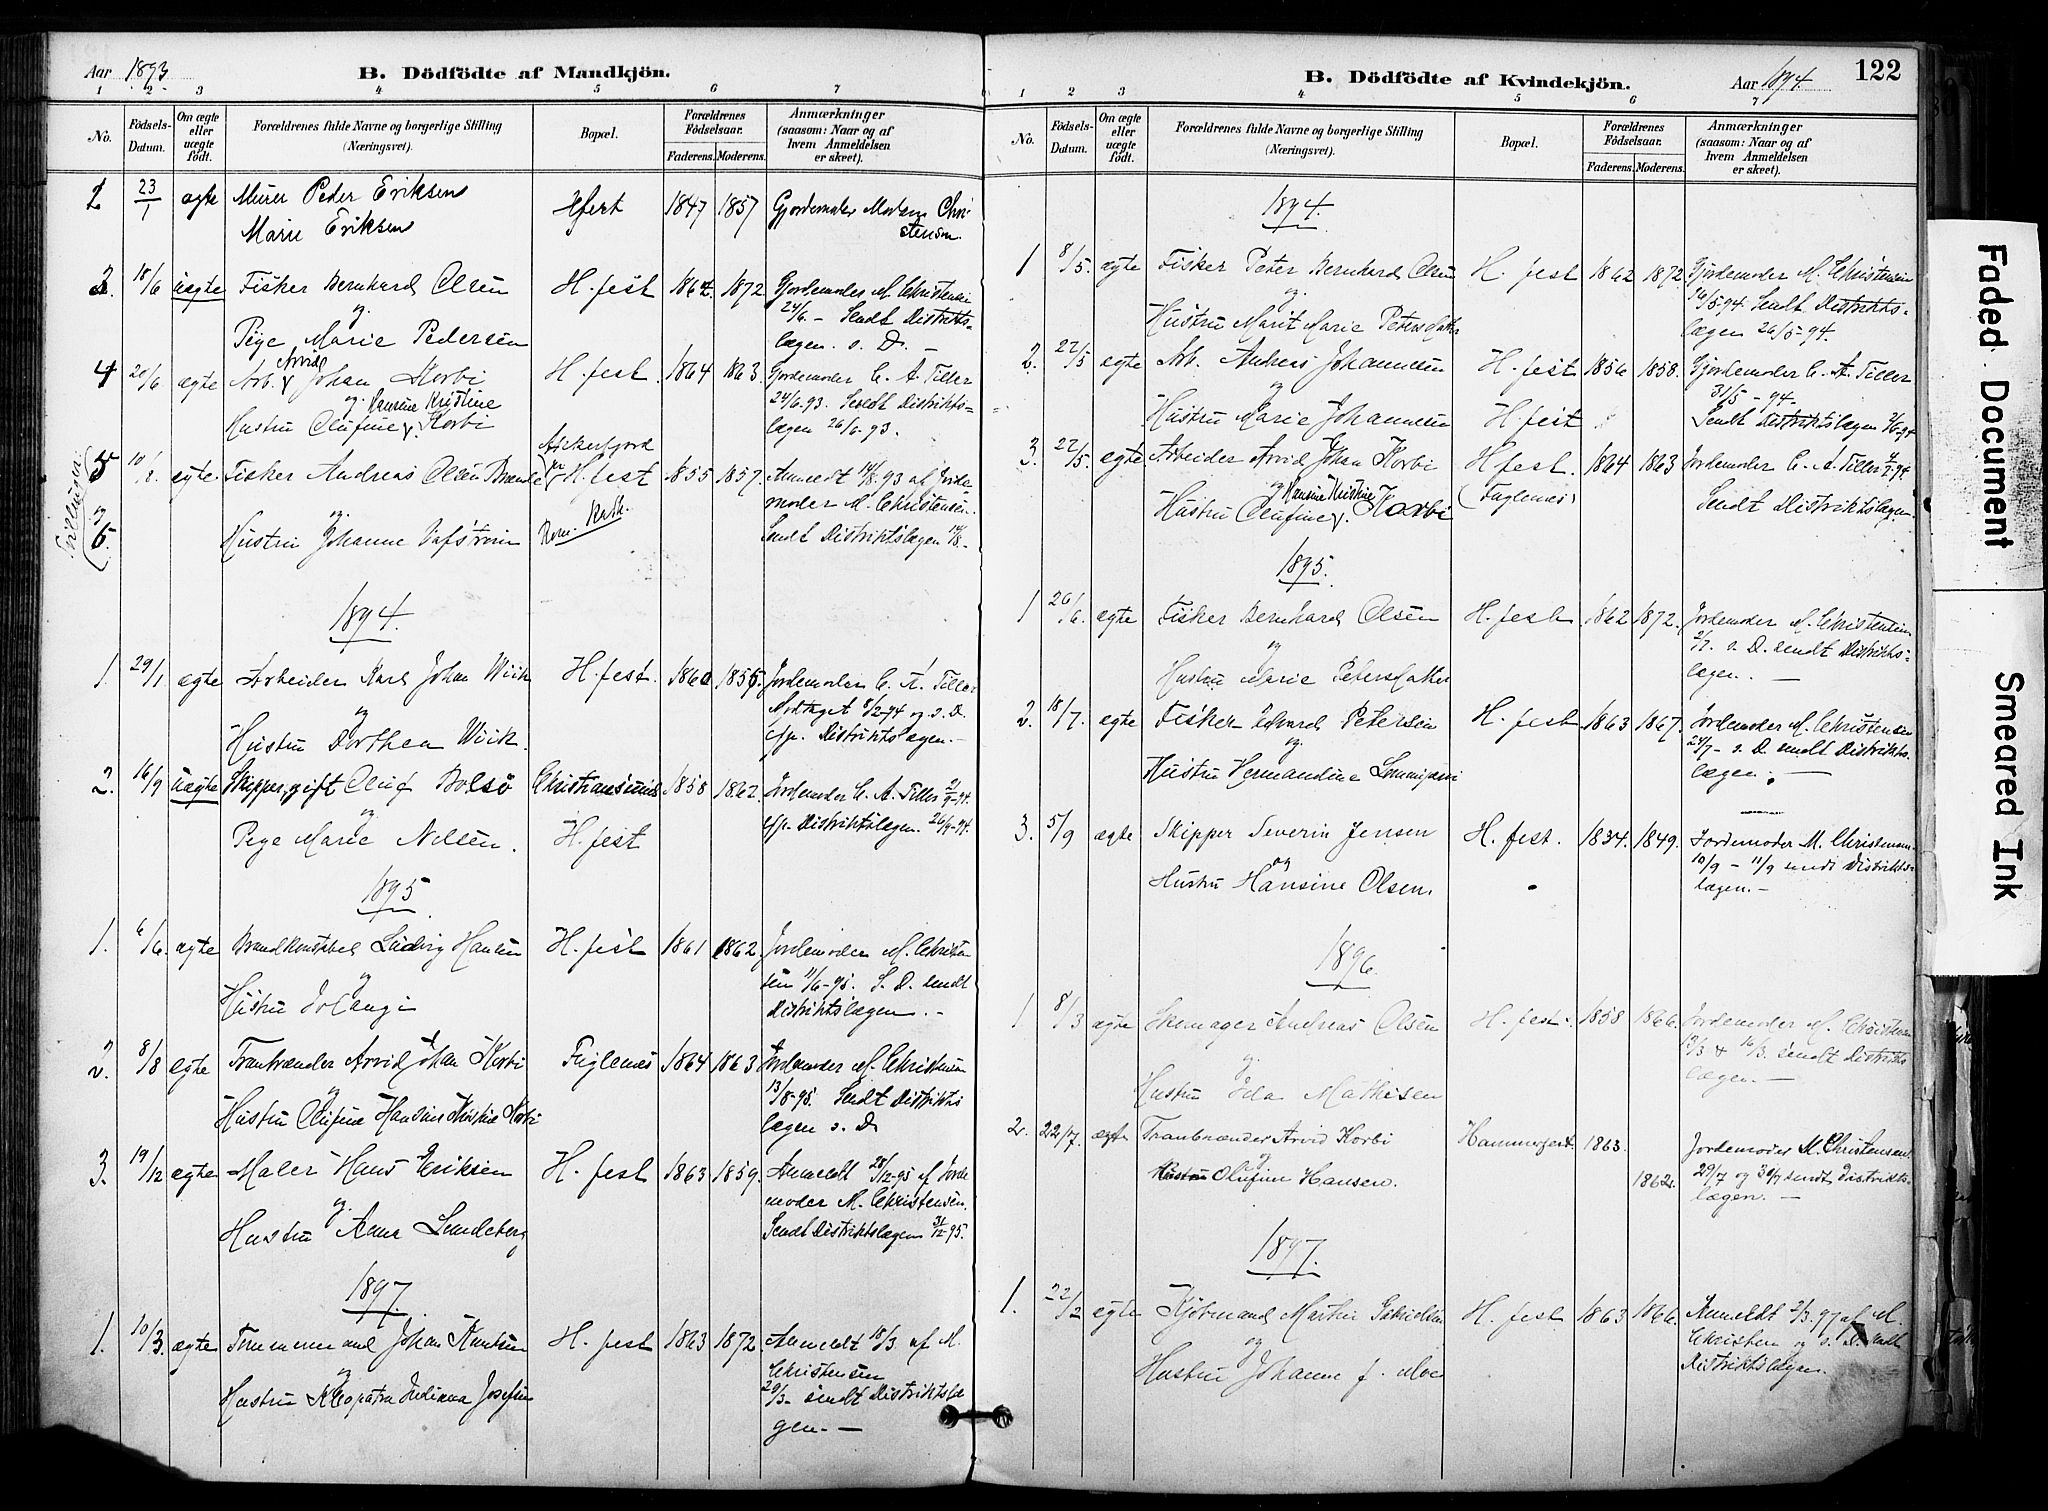 Aar 1893
B. Dödfödte af Mandkjön.
1 2 3 4 5 6 7
No.
Födsels-Datum.
Om ægte eller uægte födt.
Forældrenes fulde Navne og borgerlige Stilling (Næringsvei).
Bopæl.
Forældrenes Födselsaar.
Faderens. Moderens.
Anmærkninger (saasom: Naar og af hvem Anmeldelsen er skeet).
2 23/1 ægte Murer Peder Eriksen Hfest 1847 1857 Gjordemoder Madam Chri-
Marie Eriksen stensen.
3. 18/6 uægte Fisker Bernhard Olsen H. fest 1862 1872 Gjordemoder M. Christensen
og 24/6. - Sendt Distrikts-
Pige Marie Pedersen lægen. s. D. -
4 20/6 ægte Arb. Arvid Johan Korbi H. fest. 1864 1863. Gjordemoder C. A. Tiller
og Hansine Kristine 24/6.93. Sendt Distrikts-
Hustru Olufine Korbi lægen 26/6-93.
Tvillinger
5 10/8. ægte Fisker Andreas Olsen H. fest 1855 1857. Anmeldt 14/8.93 af Jorde
og moder M. Christensen.
6. Hustru Johanne Rom. Kath. Sendt Distriktslægen 14/8.-
1894.
1 29/1 ægte Arbeider Karl Johan Wiik H. fest. 1860 1855. Jordemoder C. A. Tiller
og 8/2-94 og s. D.
Hustru Dorthea Wiik. Distriktslægen.-
2. 16/9 uægte Skipper, gift Oluf Bolsö Christiansund 1858 1862. Jordemoder C. A. Tiller
og Distriktslægen. 26/9-94.
Pige Marie Nilsen. H. fest
1895
1. 6/6. ægte Brandkonstabel Ludvig Hansen H. fest 1861 1862. Jordemoder M. Christen
og sen 11/6-95. S. D. sendt
Hustru Distriktslægen. -
2. 8/8 ægte Tranbrænder Arvid Johan Korbi Fuglenes 1864 1863 Jordemoder M. Christensen
og 13/8-95. Sendt Distrikts
Hustru Olufine Hansine Kristine Korbi lægen s. D.
3. 19/12 ægte Maler Hans Eriksen H. fest 1863 1859. Anmeldt 28/12-95 af Jorde
og moder M. Christensen.
Hustru Anne Lundeberg Sendt Distriktslægen 31/12-95.
1897.
1. 10/3. ægte Tømmermand Johan Knutsen H. fest 1863 1872 Anmeldt 18/3. af M.
og Christensen
Hustru Kleopatra Indiana Josefine 20/3. sendt Distriktslæ
gen. -
B. Dödfödte af Kvindekjön.
Aar 1894.
122
1 2 3 4 5 6 7
No.
Födsels-Datum.
Om ægte eller uægte födt.
Forældrenes fulde Navne og borgerlige Stilling (Næringsvei).
Bopæl.
Forældrenes Födselsaar.
Faderens. Moderens.
Anmærkninger (saasom: Naar og af hvem Anmeldelsen er skeet).
1894.
1 8/5. ægte Fisker Peter Bernhard Olsen H. fest 1862 1872. Gjordemoder M. Christensen
og 16/5-94 Sendt Distrikts-
Hustru Marit Marie Petersdatter lægen 26/5-94.
2. 22/5 ægte Arb. Andreas Johannesen H. fest 1856 1858. Gjordemoder C. A. Tiller
og 31/5 - 94.
Hustru Marie Johannesen H. fest Sendt Distriktslægen
3. 22/5. ægte Arbeider Arvid Johan Korbi H. fest. 1864 1863 Jordemoder C. A. Tiller
og Hansine Kristine (Fuglenes)
Hustru Olufine Korbi Sendt Distriktslægen.
1895.
1 26/6. ægte Fisker Bernhard Olsen H. fest 1862 1872. Jordemoder M. Christensen
og 2/7. s. D. sendt Distrikts-
Hustru Marie Petersdatter lægen. -
2. 18/7. ægte Fisker Edvard Petersen H. fest 1863 1867. Jordemoder M. Christensen
og 24/7- s. D. sendt Distrikts-
Hustru Hermandine lægen. -
3. 5/9 ægte Skipper Severin Jensen H. fest. 1834. 1849. Jordemoder M. Christensen
og 10/9 - 11/9 sendt Distrikts-
Hustru Hansine Olsen. lægen. -
1896.
1 8/3 ægte Skomager Andreas Olsen H. fest. 1858 1866. Jordemoder M. Christensen
og 13/3 16/3. sendt Distrikts
Hustru Ida Mathisen lægen. -
2. 22/7. ægte Tranbrænder Arvid Korbi Hammerfest. 1863. Jordemoder M. Christensen.
og 29/7 og 30/7 sendt Distrikts-
Hustru Olufine Hansen. 1862. lægen. -
1897.
1. 22/2 ægte Kjøbmand Martin H. fest 1863 1866. Anmeldt 2/3.97 af M.
og Christen og s. D. sendt
Hustru Johanne f. Moe Distriktslægen.
Faded Document
Smeared Ink